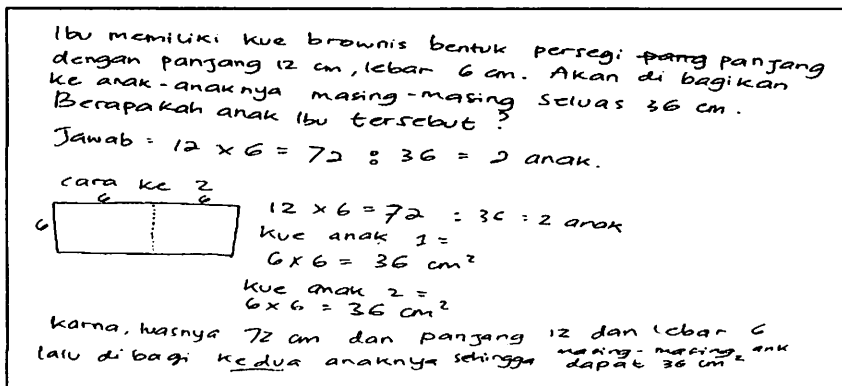 Ibu memiliki kue brownis bentuk persegi pang panjang
dengan panjang 12 cm, lebar 6 cm. Akan di bagikan
ke anak-anaknya masing-masing seluas 36 cm.
Berapakah anak Ibu tersebut ?
Jawab = 12 x 6 = 72 : 36 = 2 anak.
cara ke 2
6 6
6
12 x 6 = 72 : 36 = 2 anak
kue anak 1 =
6 x 6 = 36 cm²
kue anak 2 =
6 x 6 = 36 cm²
karna, luasnya 72 cm dan panjang 12 dan lebar 6
lalu di bagi kedua anaknya sehingga masing-masing ank dapat 36 cm²